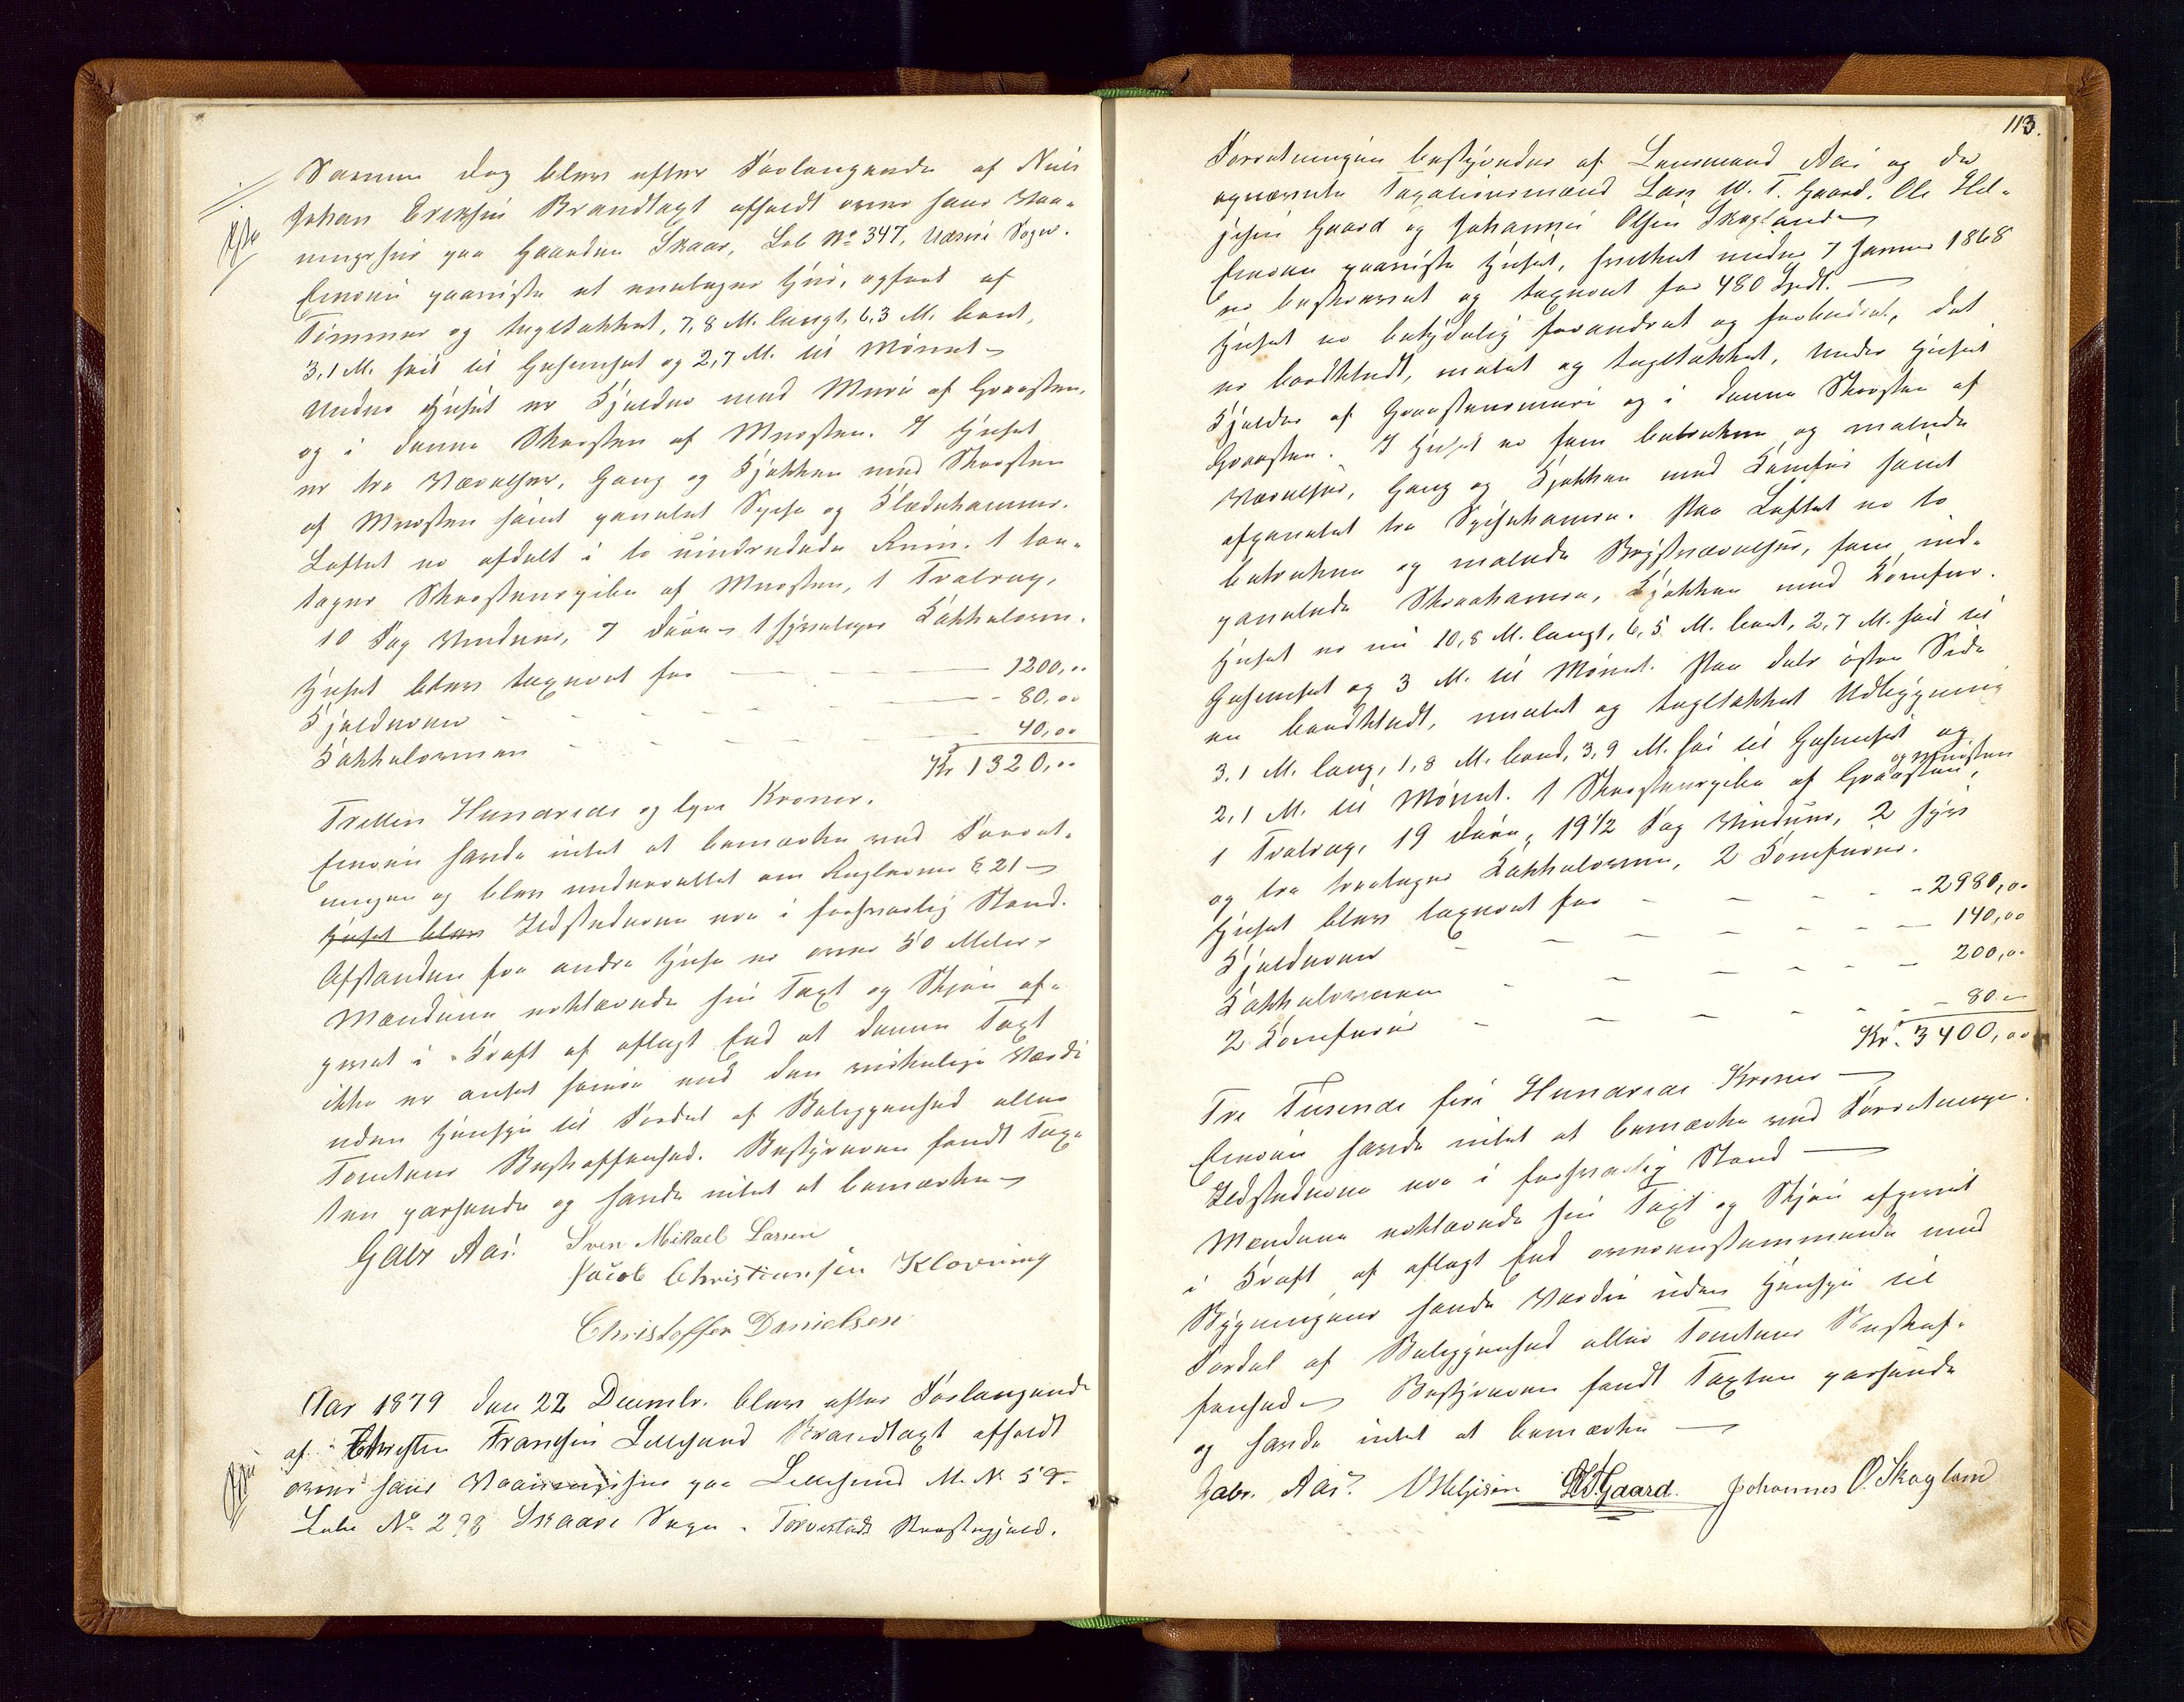 Samme Dag blev efter Forlangende af Niels
Johan Eriksen Brandtaxt afholdt over hans Vaa-
ningshus paa Gaarden Skaar, Løb No 347, Udsire Sogn.
Eieren paaviste et enetages Hus, opført af
Tømmer og tegltækket, 7,8 M. langt, 6,3 M. bredt,
3,1 M. høit til Gesimset og 2,7 M. til Mønet
Under Huset er Kjelder med Mure af Graasten,
og i denne Skorsten af Mursten. I Huset
er tre Værelser, Gang og Kjøkken med Skorsten
af Mursten samt panelet Spise og Klædekammer.
Loftet er afdelt i to uindredede Rum. 1 toe-
tages Skorstenspibe af Mursten, 1 Trætrap,
10 Fag Vinduer, 7 Døre 1 Kakkelovn.
Huset blev taxeret for 1200,00
Kjelderen 80,00
Kakkelovnen 40,00
Kr 1320,00
Tretten Hundrede og tyve Kroner.
Eieren havde intet at bemærke ved Forret-
ningen og blev underrettet om Reglerne § 21
Huset blev Ildstederne var i forsvarlig Stand.
Afstanden fra andre Huse er over 50 Meter
Mændene erklærede sin Taxt og Skjøn af-
givet i Kraft af aflagt Eed at denne Taxt
ikke er ansat høiere end den virkelige Værdi
uden Hensyn til Fordel af Beliggenhed eller
Tomtens Beskaffenhed. Bestyreren fandt Tax-
ten passende og havde intet at bemærke
Gabr Aas. Sven Mikael Larsen
Jacob Christiansen Klovning
Christoffer Danielsen
Aar 1879 den 22 Decembr. blev efter Forlangende
af Fransen Lillesund Brandtaxt afholdt
over hans Vaaningshus paa Lillesund M. N. 59
Løbe No 298 Skaare Sogn Torvestad Præstegjeld.
113.
Forretningen bestyredes af Lensmand Aas og de
opnævnte Taxationsmænd Lars W. T. Gaard, Ole Hel-
jesen Gaard og Johannes Olsen Skogland
Eieren paaviste Huset, hvilket under 7 Januar 1868
er beskrevet og taxeret for 480 Spdl.
Huset er betydelig forandret og forbedret, det
er bordklædt, malet og tegltækket, Under Huset
Kjelder af Graastensmure og i denne Skorsten af
Graasten. I Huset er fem betrukne og malede
Værelser, Gang og Kjøkken med Komfur samt
afpanelet tre Spisekamre. Paa Loftet er to
betrukne og malede Kvistværelser, fem ind-
panelede Skraakamre, Kjøkken med Komfur.
Huset er nu 10,8 M. langt, 6,5 M. bredt, 2,7 M. høit til
Gesimset og 3 M. til Mønet. Paa dets østre Side
en bordklædt, malet og tegltækket Udbygning
3,1 M. lang, 1,8 M. bred, 3,9 M. høi til Gesimset og
2,1 M. til Mønet. 1 Skorstenspibe af Graasten og Mursten,
1 Trætrap, 19 Døre, 19 1/2 Fag Vinduer, 2
og tre toetages Kakkelovne, 2 Komfurer.
Huset blev taxeret for 2980,00
Kjelderen 140,00
Kakkelovnene 200,00
2 Komfurer 80
Kr. 3400,00
Tre Tusende fire Hundrede Kroner
Eieren havde intet at bemærke ved Forretningen.
Ildstederne var i forsvarlig Stand
Mændene erklærede sin Taxt og Skjøn afgivet
i Kraft af aflagt Eed overensstemmende med
Bygningens sande Værdie uden Hensyn til
Fordel af Beliggenhed eller Tomtens Beskaf-
fenhed Bestyreren fandt Taxten passende
og havde intet at bemærke
Gabr. Aas. O Heljesen LWTGaard. Johannes O. Skogland